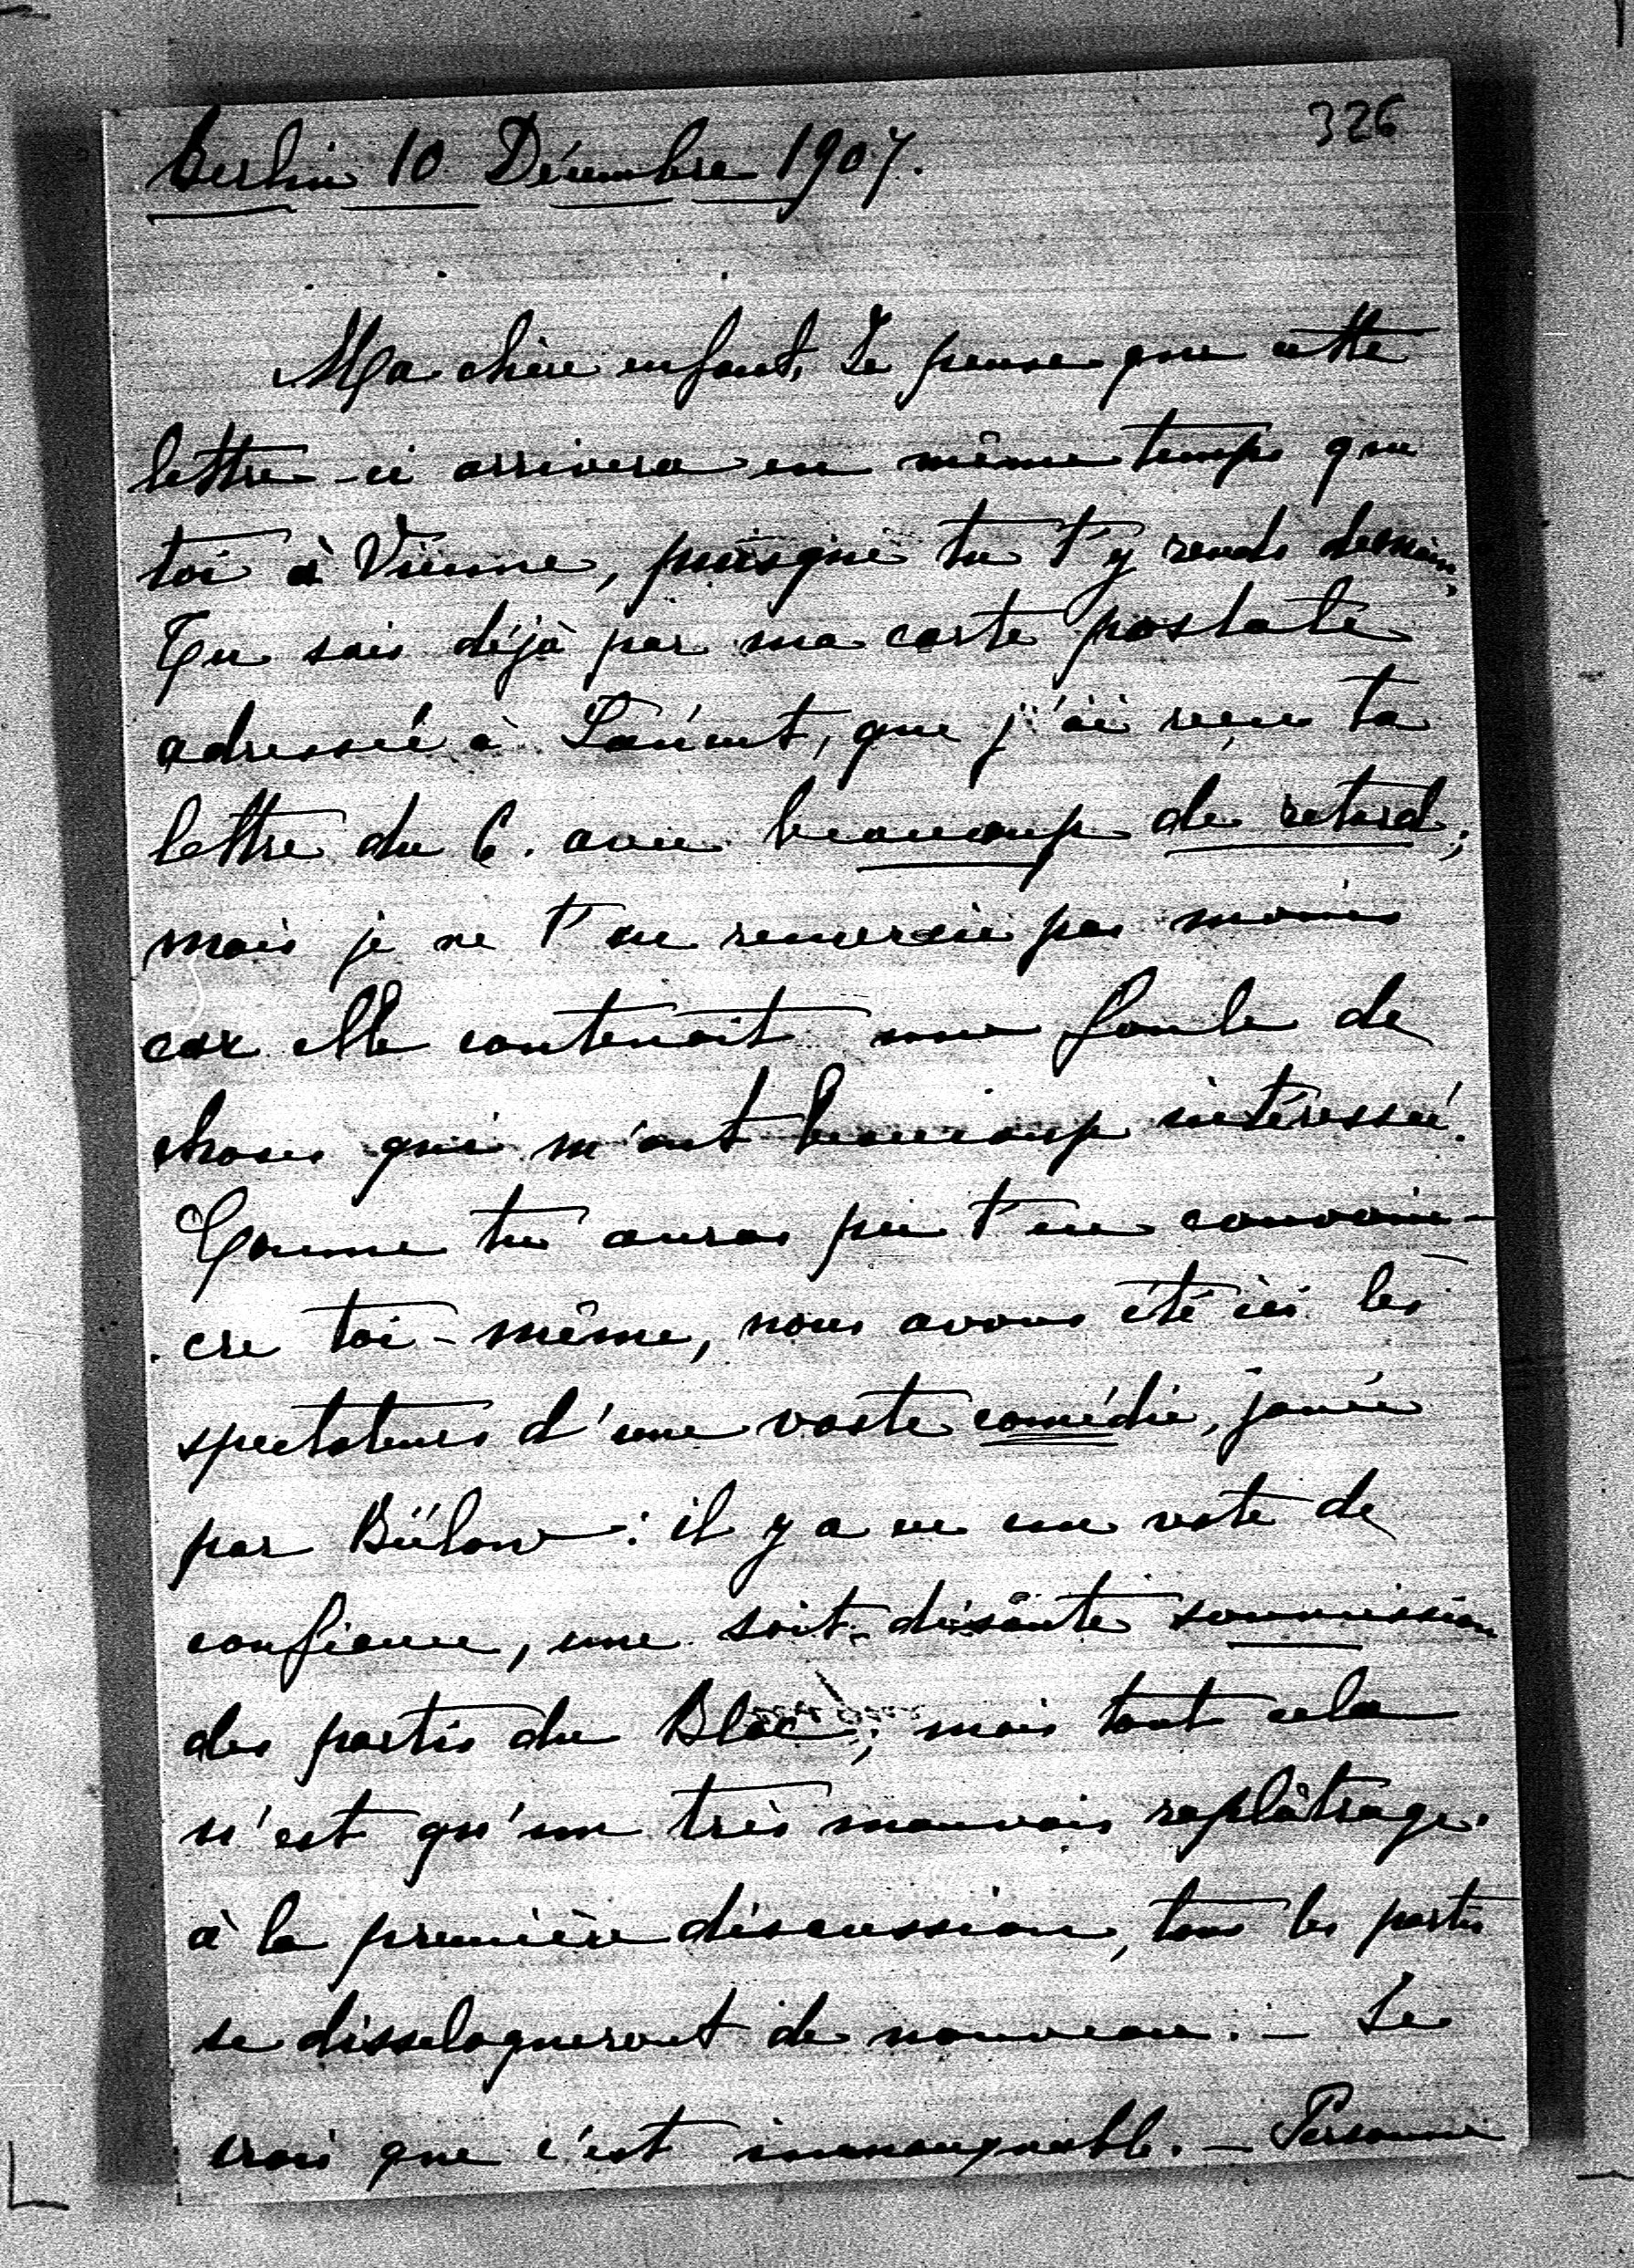 326
Berlin 10 Décembre 1907.
Ma chère enfant, Je pense que cette
lettre-ci arrivera en même temps que
toi à Vienne, puisque tu t'y rends demain,
Tu sais déjà par ma carte postale
adressée à Lancut, que j'ai reçu ta
lettre du 6. avec beaucoup de retard;
mais je ne t'en remercie pas moins
car elle contenait une foule de
choses qui m'ont beaucoup intéressé.
Comme tu auras pu t'en convain-
cre toi-même, nous avons été ici les
spectateurs d'une vaste comédie, jouée
par Bülow: il y a eu un vote de
confiance, une soit-disante soumission
des partis du Bloc; mais tout cela
n'est qu'un très mauvais replâtrage.
à la première discussion, tous les partis
se disseloqueront de nouveau. — Je
crois que c'est immanquable. — Personne